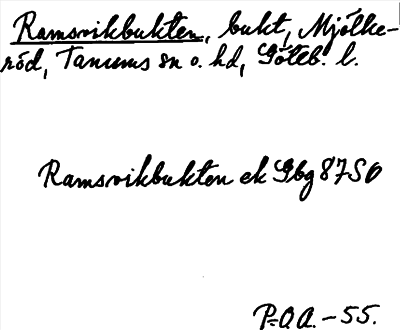 Ramsvikbukten, bukt, Mjölke-
röd, Tanums sn o. hd, Göteb. l.
Ramsvikbukten ek Gbg 87 SO
P-O.A. - 55.